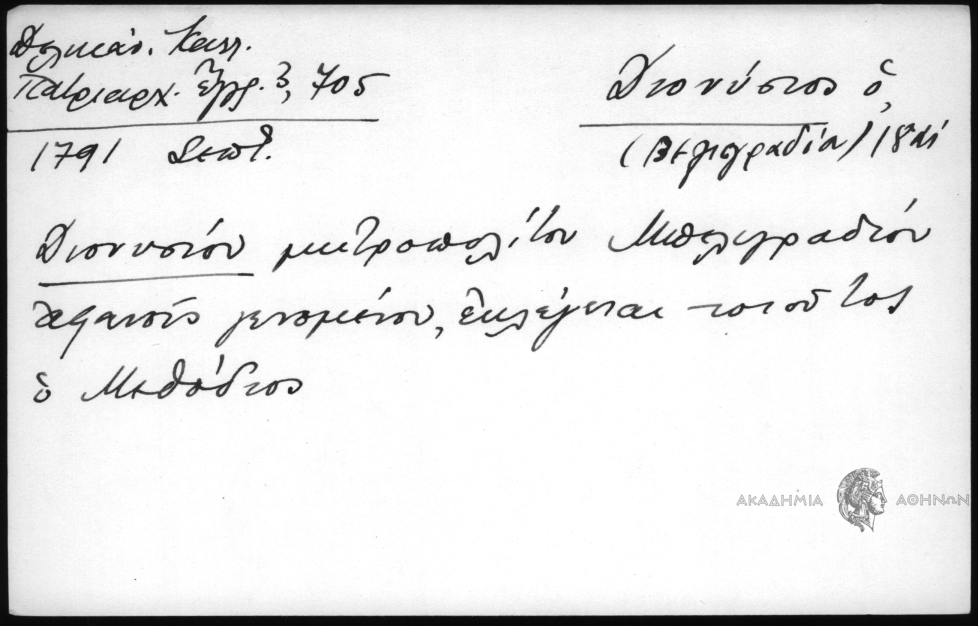 Δελικάν. Καλλ.
Πατριαρχ. Ἔγγρ. 3, 705
1791 Σεπτ.
Διονύσιος ὁ,
(Βελιγραδία) 18
Διονυσίου μητροπολίτου Μπελιγραδίου
ἀφανοῦς γενομένου, ἐκλέγεται τοιοῦτος
ὁ Μεθόδιος
ΑΚΑΔΗΜΙΑ ΑΘΗΝΩΝ